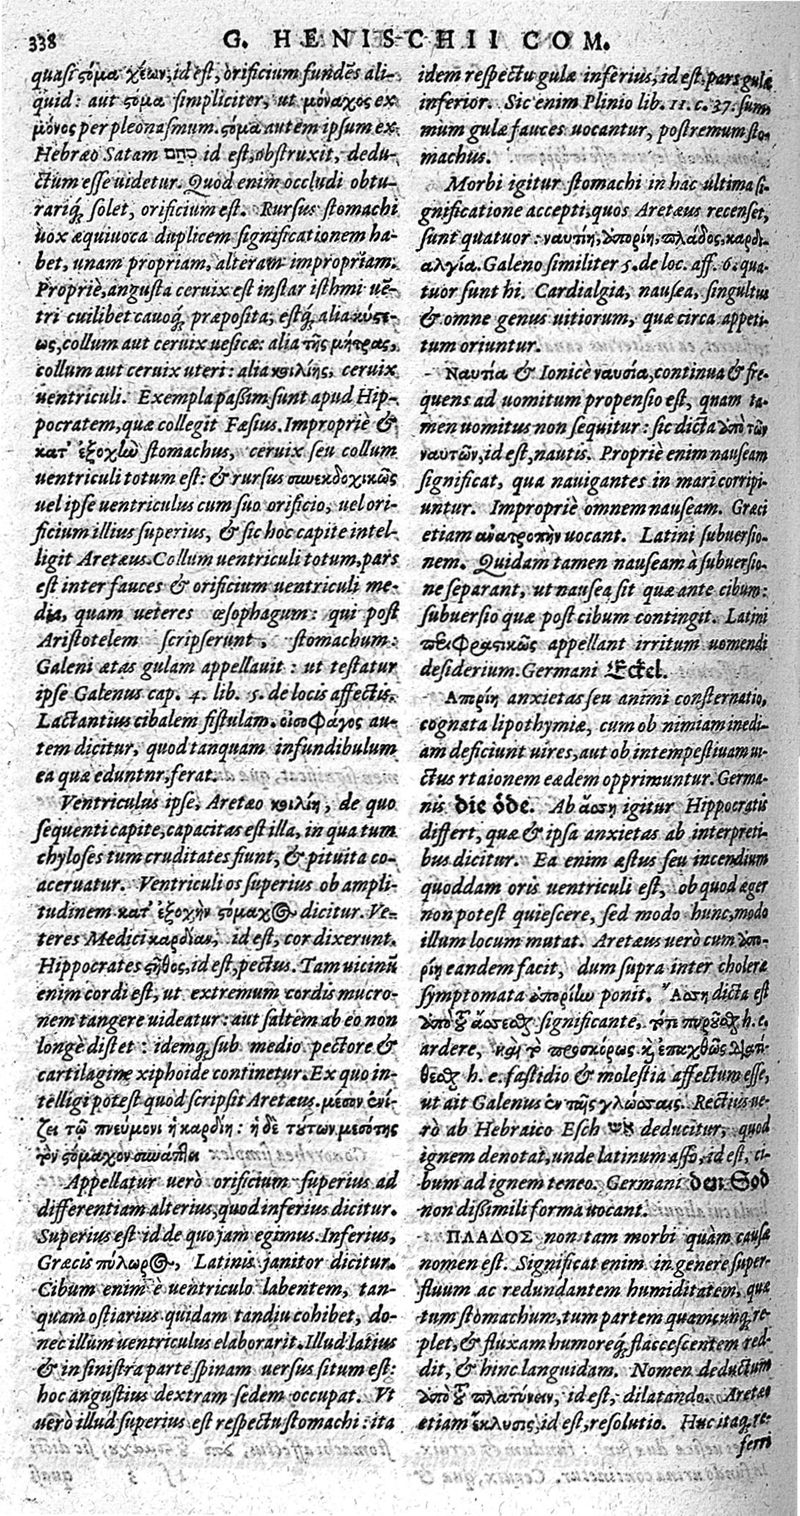 338
G. HENISCHII COM.
quasi ςόμα χέων, id est, orificium fundẽs ali-
quid: aut ςόμα simpliciter, ut μόναχος ex
μόνος per pleonasmum. ςόμα autem ipsum ex
Hebræo Satam סתם id est, obstruxit, dedu-
ctum esse uidetur. Quod enim occludi obtu-
rariq́; solet, orificium est. Rursus stomachi
uox æquiuoca duplicem significationem ha-
bet, unam propriam, alteram impropriam.
Propriè, angusta ceruix est instar isthmi uẽ-
tri cuilibet cauoq́; præposita; estq́; alia κύςε-
ως, collum aut ceruix uesicæ: alia τῆς μήτρας,
collum aut ceruix uteri: alia κοιλίης, ceruix
uentriculi. Exempla paßim sunt apud Hip-
pocratem, quæ collegit Fæsius. Impropriè &
κατ' ἐξοχὴν stomachus, ceruix seu collum
uentriculi totum est: & rursus συνεκδοχικῶς
uel ipse uentriculus cum suo orificio, uel ori-
ficium illius superius, & sic hoc capite intel-
ligit Aretæus. Collum uentriculi totum, pars
est inter fauces & orificium uentriculi me-
dia, quam ueteres œsophagum: qui post
Aristotelem scripserunt, stomachum:
Galeni ætas gulam appellauit: ut testatur
ipse Galenus cap. 4. lib. 5. de locis affectis.
Lactantius cibalem fistulam. οἰσοφάγος au-
tem dicitur, quod tanquam infundibulum
ea quæ eduntnr, ferat.
Ventriculus ipse, Aretæo κοιλίη, de quo
sequenti capite, capacitas est illa, in qua tum
chyloses tum cruditates fiunt, & pituita co-
aceruatur. Ventriculi os superius ob ampli-
tudinem κατ' ἐξοχὴν ςόμαχος dicitur. Ve-
teres Medici καρδίαν, id est, cor dixerunt.
Hippocrates ςῆθος, id est, pectus. Tam uicinũ
enim cordi est, ut extremum cordis mucro-
nem tangere uideatur: aut saltem ab eo non
longè distet: idemq́; sub medio pectore &
cartilagine xiphoide continetur. Ex quo in-
telligi potest quod scripsit Aretæus. μέσον ἑνί-
ζει τῷ πνεύμονι ἡ καρδίη: ἡ δὲ τȣ́των μεσότης
τὸν ςόμαχον συνάπτει
Appellatur uerò orificium superius ad
differentiam alterius, quod inferius dicitur.
Superius est id de quo jam egimus. Inferius,
Græcis πύλωρος, Latinis janitor dicitur.
Cibum enim è uentriculo labentem, tan-
quam ostiarius quidam tandiu cohibet, do-
nec illum uentriculus elaborarit. Illud latius
& in sinistra parte spinam uersus situm est:
hoc angustius dextram sedem occupat. Vt
uerò illud superius est respectu stomachi: ita
idem respectu gulæ inferius, id est, pars gulæ
inferior. Sic enim Plinio lib. 11. c. 37. sum
mum gulæ fauces uocantur, postremum sto
machus.
Morbi igitur stomachi in hac ultima si-
gnificatione accepti, quos Aretæus recenset,
sunt quatuor: ναυτίη, ἀπορίη, πλάδος, καρδι-
αλγία. Galeno similiter 5. de loc. aff. 6. qua-
tuor sunt hi. Cardialgia, nausea, singultus
& omne genus uitiorum, quæ circa appeti-
tum oriuntur.
Ναυτία & Ionicè ναυσία, continua & fre-
quens ad uomitum propensio est, quam ta-
men uomitus non sequitur: sic dicta ἀπὸ τῶν
ναυτῶν, id est, nautis. Propriè enim nauseam
significat, qua nauigantes in mari corripi-
untur. Impropriè omnem nauseam. Græci
etiam ἀνατροπὴν uocant. Latini subuersio-
nem. Quidam tamen nauseam à subuersio-
ne separant, ut nausea sit quæ ante cibum:
subuersio quæ post cibum contingit. Latini
περιφραςικῶς appellant irritum uomendi
desiderium. Germani Eckel.
Απρίη anxietas seu animi consternatio,
cognata lipothymiæ, cum ob nimiam inedi-
am deficiunt uires, aut ob intempestiuam ui-
ctus rtaionem eædem opprimuntur. Germa-
nis die öde. Ab ἄση igitur Hippocratis
differt, quæ & ipsa anxietas ab interpreti-
bus dicitur. Ea enim æstus seu incendium
quoddam oris uentriculi est, ob quod æger
non potest quiescere, sed modo hunc, modo
illum locum mutat. Aretæus uerò cum ἀπο-
ρίη eandem facit, dum supra inter choleræ
symptomata ἀπορίην ponit. Ἄση dicta est
ἀπὸ τȣ͂ ἄσεσθαι significante, τὸ πυρȣ͂σθαι h. e.
ardere, καὶ τὸ προσκόρως κ̀ ἐπαχθῶς διατί-
θεσθαι h. e. fastidio & molestia affectum esse,
ut ait Galenus ἐν ταῖς γλώσσαις. Rectius ue-
rò ab Hebraico Esch אש deducitur, quod
ignem denotat, unde latinum asso, id est, ci-
bum ad ignem teneo. Germani den Sod
non dissimili forma uocant.
ΠΛΑΔΟΣ non tam morbi quàm causæ
nomen est. Significat enim in genere super-
fluum ac redundantem humiditatem, quæ
tum stomachum, tum partem quamcunq; re-
plet, & fluxam humoreq́; flaccescentem red-
dit, & hinc languidam. Nomen deductum
ἀπὸ τȣ͂ πλατύνειν, id est, dilatando. Aretæo
etiam ἔκλυσις, id est, resolutio. Huc itaq; re-
ferri